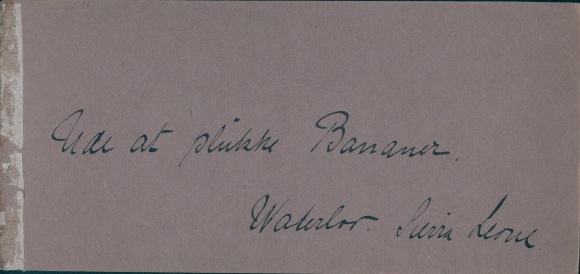 Ude at plukke Bananer.
Waterloo. Sierra Leone.